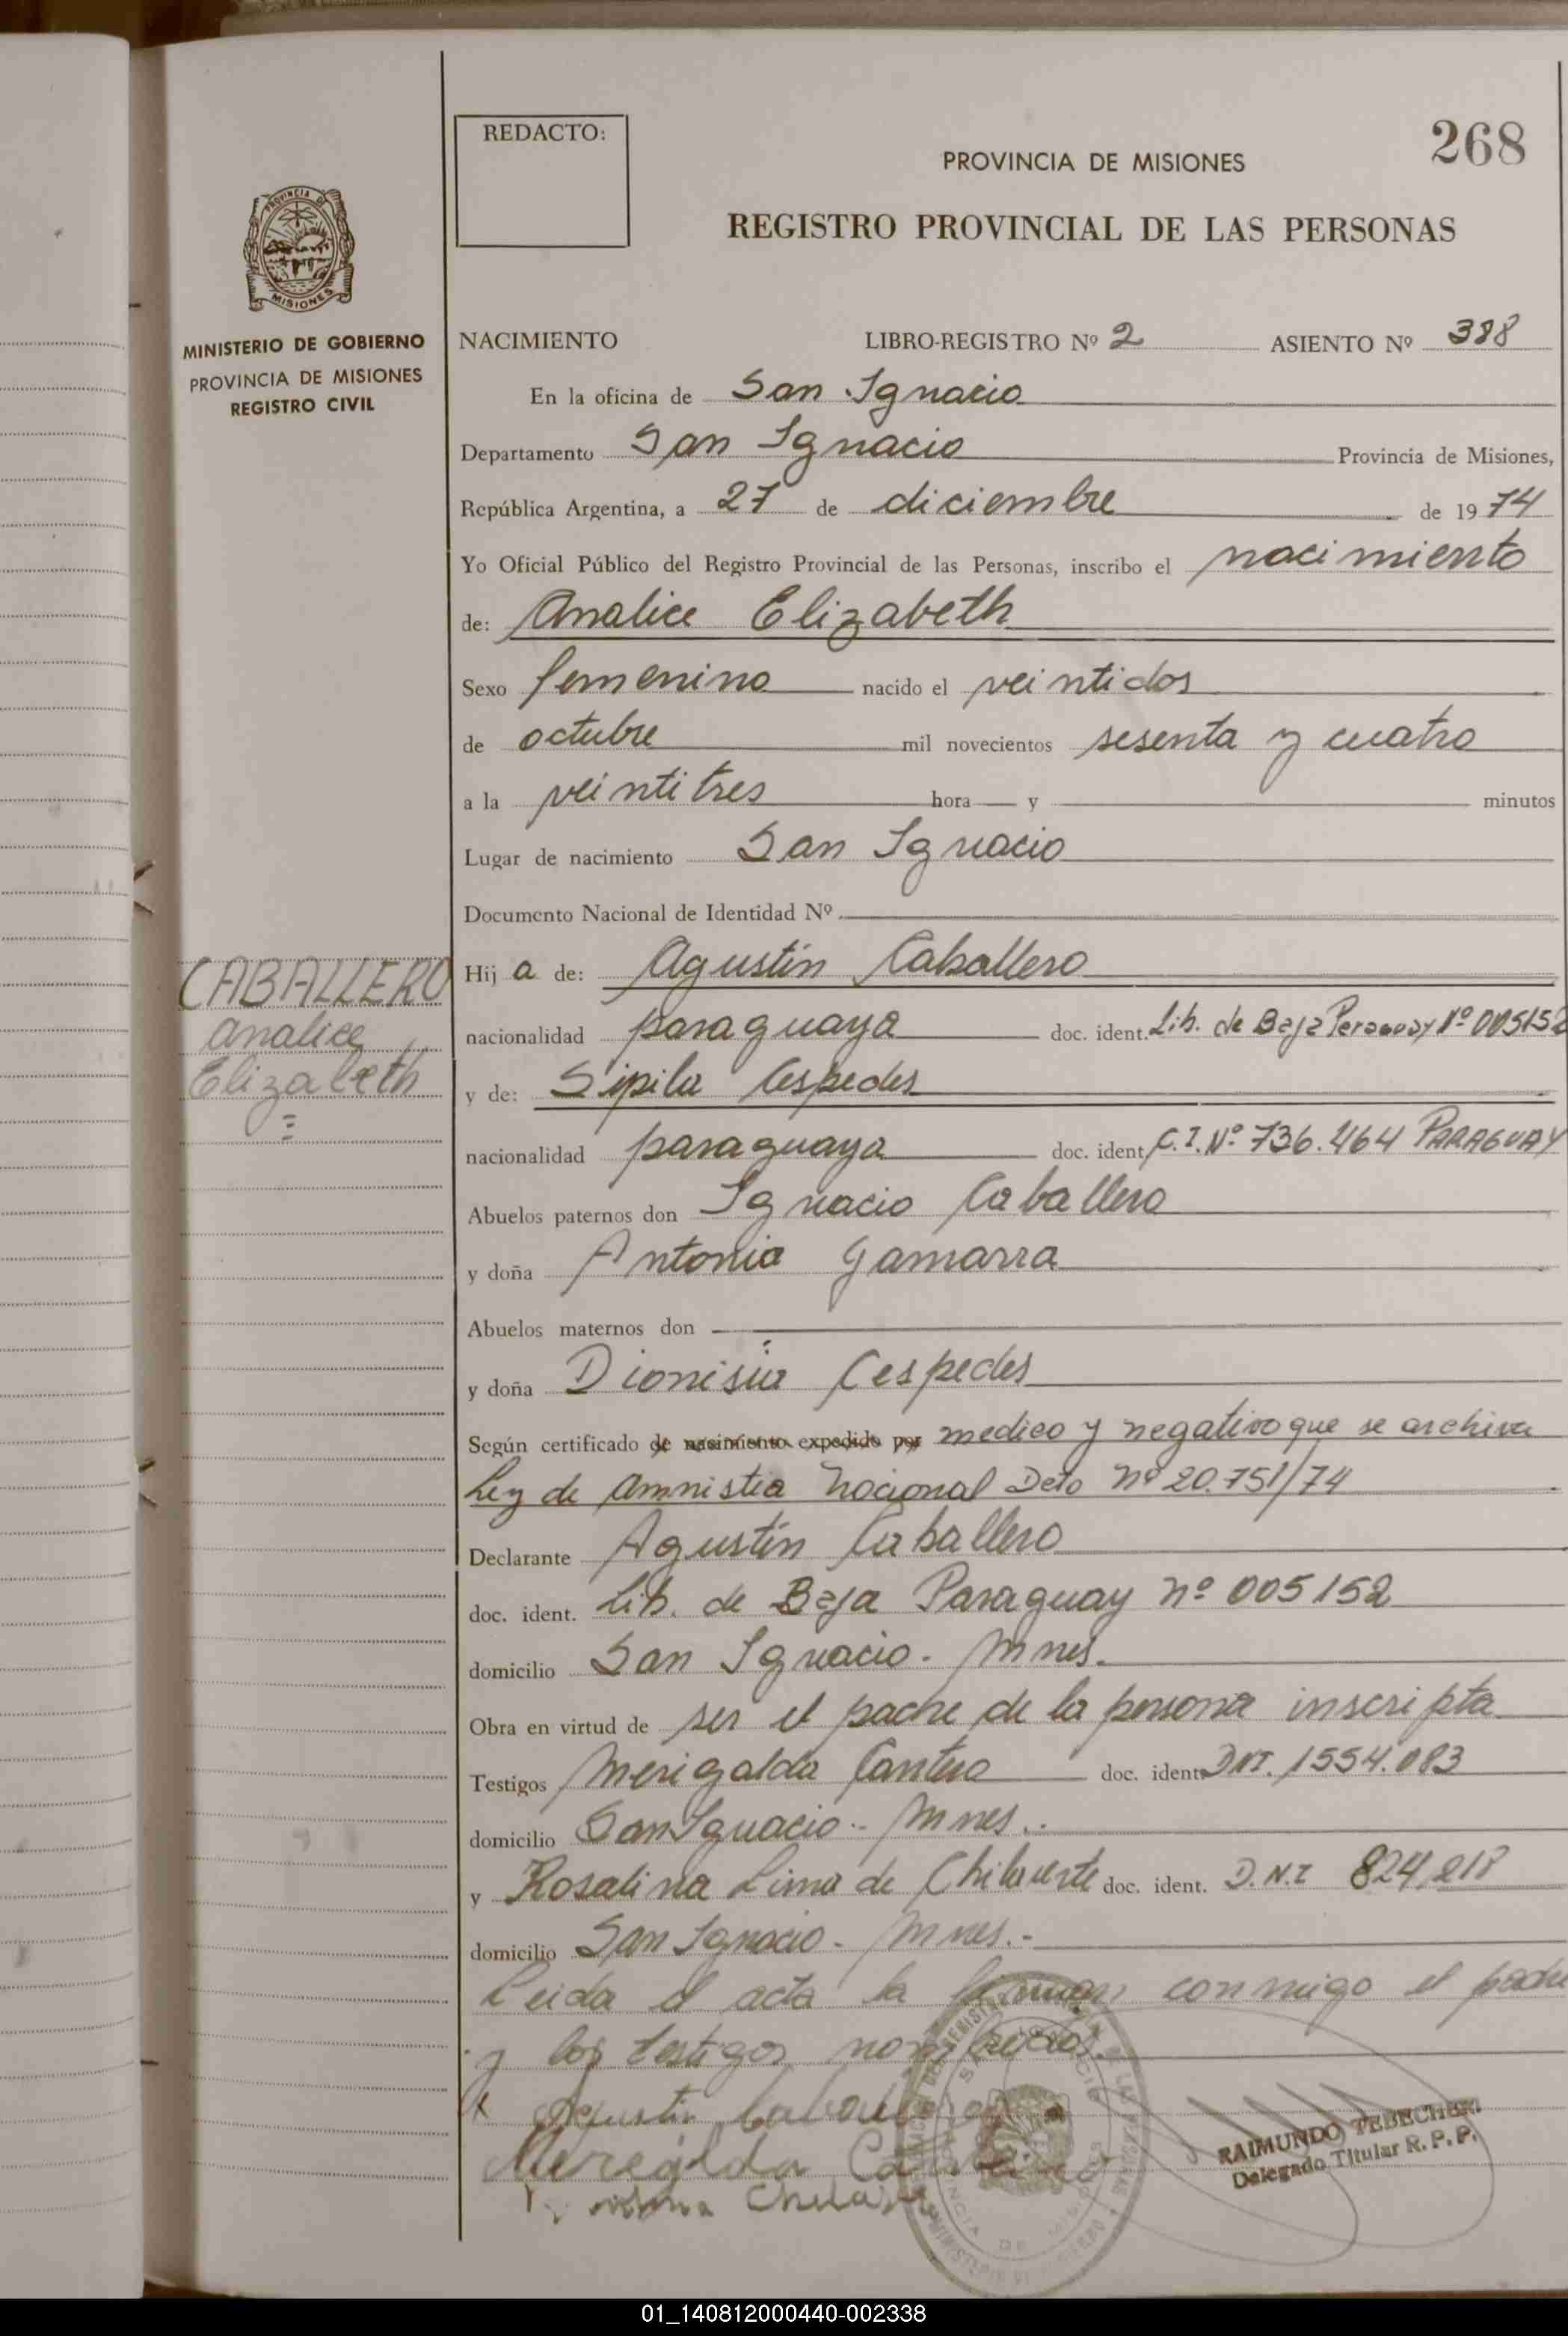 268
REDACTO:
PROVINCIA DE MISIONES
REGISTRO PROVINCIAL DE LAS PERSONAS
MISIONES
MINISTERIO DE GOBIERNO
PROVINCIA DE MISIONES
REGISTRO CIVIL
NACIMIENTO LIBRO-REGISTRO Nº 2 ASIENTO Nº 388
En la oficina de San Ignacio
Departamento San Ignacio Provincia de Misiones,
República Argentina, a 27 de diciembre de 1974
Yo Oficial Público del Registro Provincial de las Personas, inscribo el nacimiento
de: Analice Elizabeth
Sexo femenino nacido el veintidos
de octubre mil novecientos sesenta y cuatro
a la veintitres hora y minutos
Lugar de nacimiento San Ignacio
Documento Nacional de Identidad Nº
CABALLERO
Analice
Elizabeth
Hija de: Agustín Caballero
nacionalidad paraguaya doc. ident. Lib. de Baja Paraguay Nº 005152
y de: Sipila Cespedes
nacionalidad paraguaya doc. ident. C.I. Nº 736.464 PARAGUAY
Abuelos paternos don Ignacio Caballero
y doña Antonia Gamarra
Abuelos maternos don
y doña Dionisia Cespedes
Según certificado de nacimiento expedido por medico y negativo que se archiva
Ley de Amnistia Nacional Deto nº 20.751/74
Declarante Agustín Caballero
doc. ident. Lib. de Baja Paraguay nº 005152
domicilio San Ignacio. Mnes.
Obra en virtud de ser el padre de la persona inscripta
Testigos Merigalda Cantero doc. ident. DNI. 1554.083
domicilio San Ignacio - Mnes.
y Rosalina Lima de doc. ident. D.N.I 824,218
domicilio San Ignacio - Mnes.-
Leida el acta la firman conmigo el padre
y los testigos nombrados.
Agustin Caballero
Meregilda
RAIMUNDO
Delegado Titular R. P. P.
01_140812000440-002338